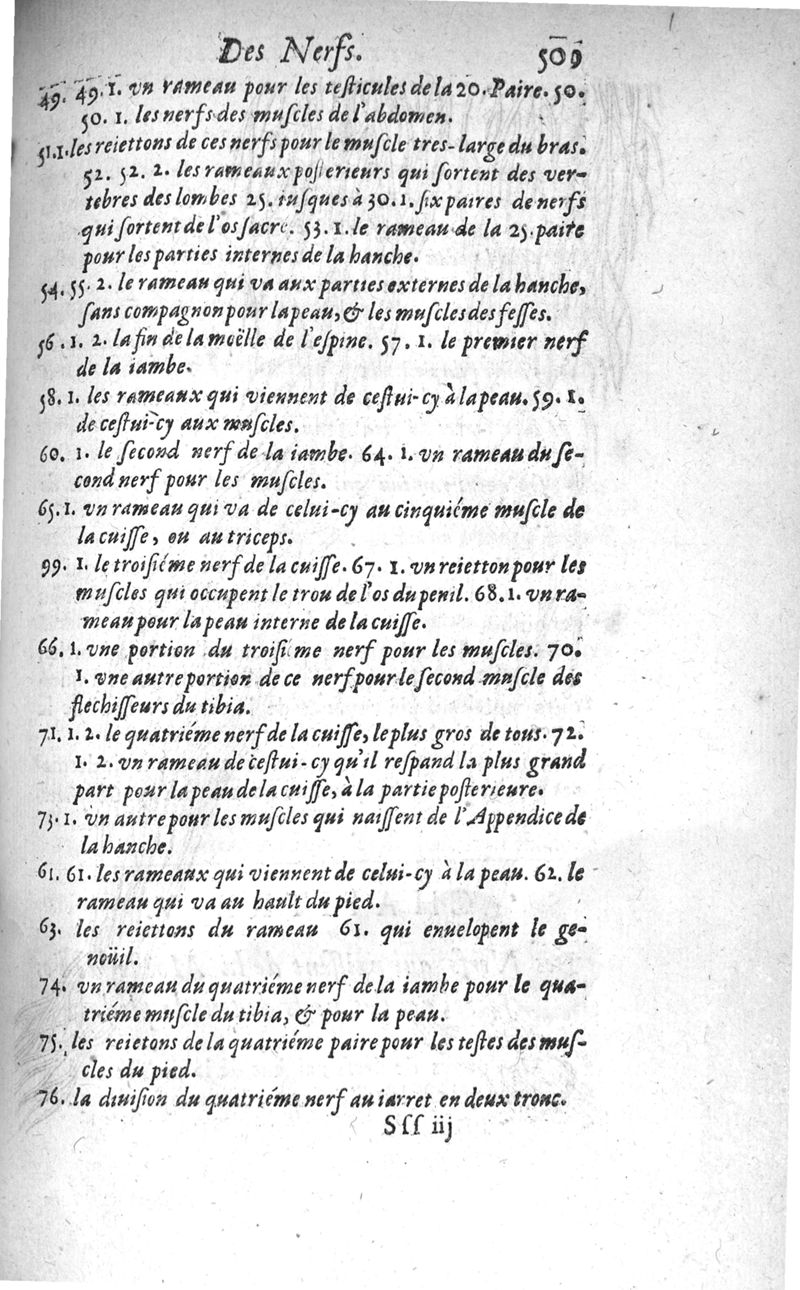 Des Nerfs. 509
49. 49. 1. vn rameau pour les teſticules de la 20. Paire. 50.
50. 1. les nerfs des muſcles de l'abdomen.
51. 1. les reiettons de ces nerfs pour le muſcle tres-large du bras.
52. 52. 2. les rameaux poſterieurs qui ſortent des ver-
tebres des lombes 25. iuſques à 30. 1. ſix paires de nerfs
qui ſortent de l'os ſacré. 53. 1. le rameau de la 25. paire
pour les parties internes de la hanche.
54. 55. 2. le rameau qui va aux parties externes de la hanche,
ſans compagnon pour la peau, & les muſcles des feſſes.
56. 1. 2. la fin de la moëlle de l'eſpine. 57. 1. le premier nerf
de la iambe.
58. 1. les rameaux qui viennent de ceſtui-cy à la peau. 59. 1.
de ceſtui-cy aux muſcles.
60. 1. le ſecond nerf de la iambe. 64. 1. vn rameau du ſe-
cond nerf pour les muſcles.
65. 1. vn rameau qui va de celui-cy au cinquiéme muſcle de
la cuiſſe, ou au triceps.
99. 1. le troiſiéme nerf de la cuiſſe. 67. 1. vn reietton pour les
muſcles qui occupent le trou de l'os du penil. 68. 1. vn ra-
meau pour la peau interne de la cuiſſe.
66. 1. vne portion du troiſiéme nerf pour les muſcles. 70.
1. vne autre portion de ce nerf pour le ſecond muſcle des
flechiſſeurs du tibia.
71. 1. 2. le quatriéme nerf de la cuiſſe, le plus gros de tous. 72.
1. 2. vn rameau de ceſtui-cy qu'il reſpand la plus grand
part pour la peau de la cuiſſe, à la partie poſterieure.
73. 1. vn autre pour les muſcles qui naiſſent de l'Appendice de
la hanche.
61. 61. les rameaux qui viennent de celui-cy à la peau. 62. le
rameau qui va au hault du pied.
63. les reiettons du rameau 61. qui enuelopent le ge-
noüil.
74. vn rameau du quatriéme nerf de la iambe pour le qua-
triéme muſcle du tibia, & pour la peau.
75. les reietons de la quatriéme paire pour les teſtes des muſ-
cles du pied.
76. la diuiſion du quatriéme nerf au iarret en deux tronc.
Sſſ iij